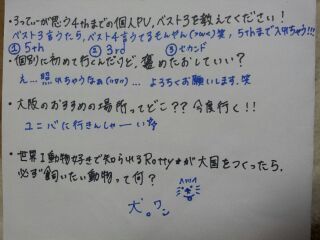 ・ろってぃが思う4thまでの個人PV、ベスト3を教えてください!
ベスト3言うたら、ベスト4言うてるもんやん(つω<)笑、5thまで入れちゃう!!!
① 5th ② 3rd ③ セカンド
・個別に初めて行くんだけど、褒めたおしていい?
え…照れちゃうなぁ(//∇//) … よろちくお願いします。笑
・大阪のおすすめの場所ってどこ?? 今度行く!!
ユニバに行きんしゃーい
・世界1動物好きで知られるRottyが大国をつくったら、
必ず飼いたい動物って何?
犬。ワン